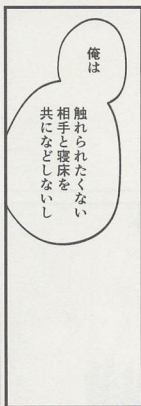 俺は
触れられたくない
相手と寝床を
共になどしないし